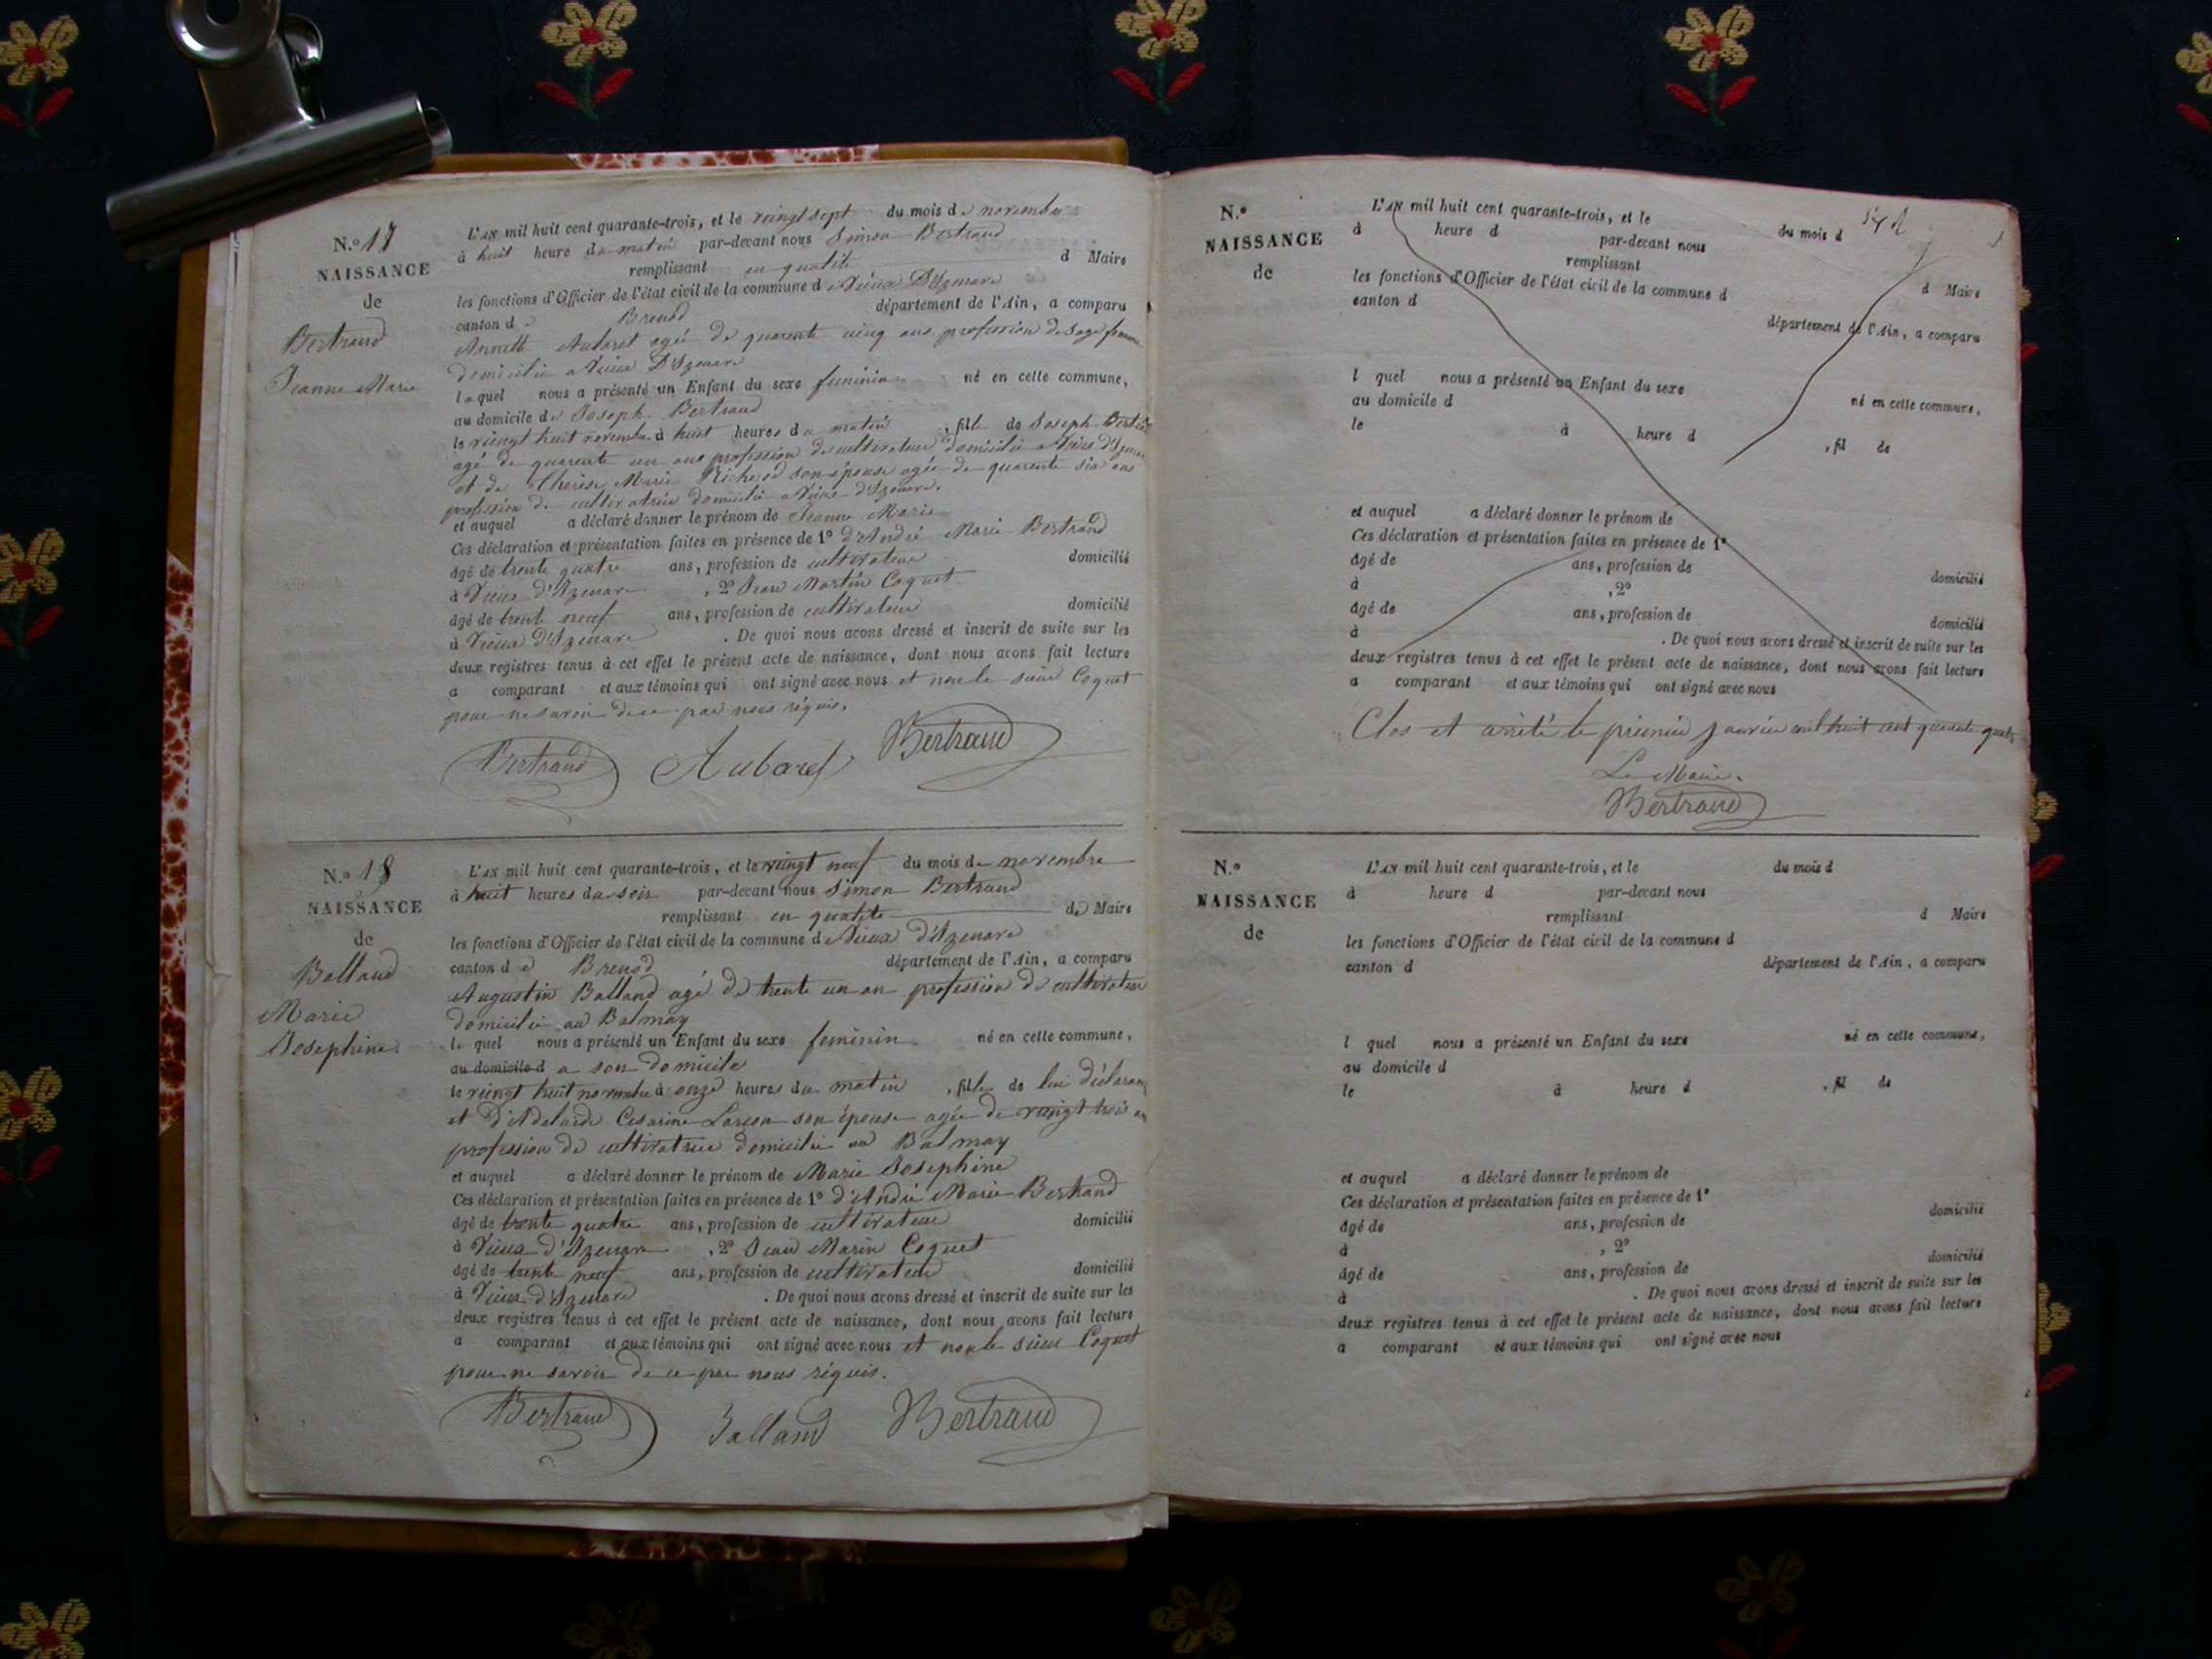 N.º 17
NAISSANCE
de
Bertrand
Jeanne Marie
L'AN mil huit cent quarante-trois, et le vingt sept du mois de novembre
à huit heure du matin par-devant nous Simon Bertrand
remplissant en qualité d Maire
les fonctions d'Officier de l'état civil de la commune d Vieux D'Izenave
canton de Brenod département de l'Ain, a comparu
Annette Aubaret agée de quarente cinq ans profession de sage femme
domiciliée a Vieux D'Izenave
laquel nous a présenté un Enfant du sexe feminin né en cette commune,
au domicile de Joseph Bertrand
le vingt huit novembre à huit heures du matin , fille de Joseph Bertrand
agé de quarente un ans profession de cultivateur domicilié a Vieux d'Izenave
et de Therèse Marie Richerod son épouse agée de quarente six ans
profession de cultivatrice domiciliée a Vieux d'Izenave.
et auquel a déclaré donner le prénom de Jeanne Marie
Ces déclaration et présentation faites en présence de 1º d'André Marie Bertrand
âgé de trente quatre ans, profession de cultivateur domicilié
à Vieux d'Izenave , 2º Jean Martin Coquet
âgé de trente neuf ans, profession de cultivateur domicilié
à Vieux d'Izenave . De quoi nous avons dressé et inscrit de suite sur les
deux registres tenus à cet effet le présent acte de naissance, dont nous avons fait lecture
a comparant et aux témoins qui ont signé avec nous et non le sieur Coquet
pour ne savoir de ce par nous réquis.
Bertrand Aubaret Bertrand
N.º 18
NAISSANCE
de
Balland
Marie
Josephine.
L'AN mil huit cent quarante-trois, et le vingt neuf du mois de novembre
à huit heures du soir par-devant nous Simon Bertrand
remplissant en qualité de Maire
les fonctions d'Officier de l'état civil de la commune d Vieux d'Izenave
canton d e Brenod département de l'Ain, a comparu
Augustin Balland agé de trente un an profession de cultivateur
domicilié au Balmay
le quel nous a présenté un Enfant du sexe feminin. né en cette commune,
au domicile d a son domicile
le vingt huit novembre à onze heures du matin , fille de lui déclarant
et d'Adelaide Cesarine son épouse agée de vingt trois ans
profession de cultivatrice domiciliée au Balmay
et auquel a déclaré donner le prénom de Marie Josephine
Ces déclaration et présentation faites en présence de 1º d'André Marie Bertrand
âgé de trente quatre ans, profession de cultivateur domicilié
à Vieux d'Izenave , 2º Jean Marin Coquet
âgé de trente neuf ans, profession de cultivateur domicilié
à Vieux d'Izenave . De quoi nous avons dressé et inscrit de suite sur les
deux registres tenus à cet effet le présent acte de naissance, dont nous avons fait lecture
a comparant et aux témoins qui ont signé avec nous et non le sieur Coquet
pour ne savoir de ce par nous réquis.
Bertrand Balland Bertrand
N.º
NAISSANCE
de
L'AN mil huit cent quarante-trois, et le du mois d
à heure d par-devant nous
remplissant d Maire
les fonctions d'Officier de l'état civil de la commune d
canton d département de l'Ain, a comparu
l quel nous a présenté un Enfant du sexe né en cette commune,
au domicile d
le à heure d , fil de
et auquel a déclaré donner le prénom de
Ces déclaration et présentation faites en présence de 1º
âgé de ans, profession de domicilié
à , 2º
âgé de ans, profession de domicilié
à . De quoi nous avons dressé et inscrit de suite sur les
deux registres tenus à cet effet le présent acte de naissance, dont nous avons fait lecture
a comparant et aux témoins qui ont signé avec nous
Clos et arrêté le premier janvier mil huit cent quarante quatre
Le Maire.
Bertrand
N.º
NAISSANCE
de
L'AN mil huit cent quarante-trois, et le du mois d
à heure d par-devant nous
remplissant d Maire
les fonctions d'Officier de l'état civil de la commune d
canton d département de l'Ain, a comparu
l quel nous a présenté un Enfant du sexe né en cette commune,
au domicile d
le à heure d , fil de
et auquel a déclaré donner le prénom de
Ces déclaration et présentation faites en présence de 1º
âgé de ans, profession de domicilié
à , 2º
âgé de ans, profession de domicilié
à . De quoi nous avons dressé et inscrit de suite sur les
deux registres tenus à cet effet le présent acte de naissance, dont nous avons fait lecture
a comparant et aux témoins qui ont signé avec nous